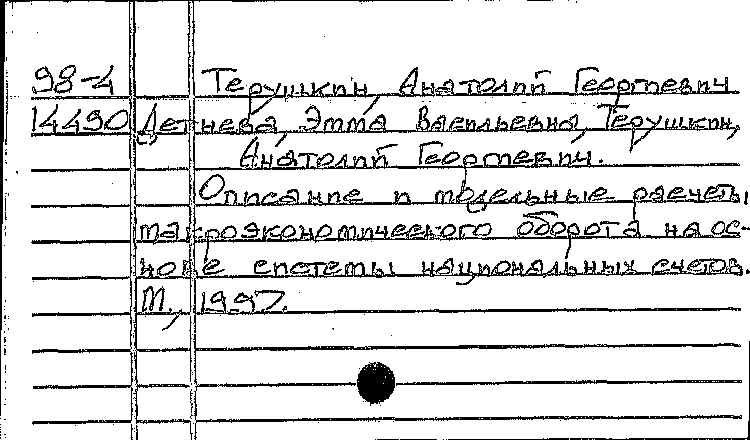 98-4 Терушкин, Анатолий Георгиевич
14490 Детнева, Эмма Васильевна, Терушкин,
Анатолий Георгиевич.
Описание и модельные расчеты
макроэкономического оборота на ос-
нове системы национальных счетов.
М., 1997.